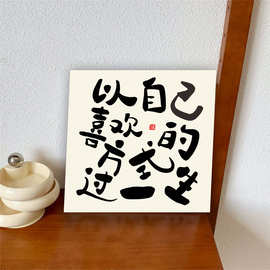 以自己
喜欢的
方式
过一生